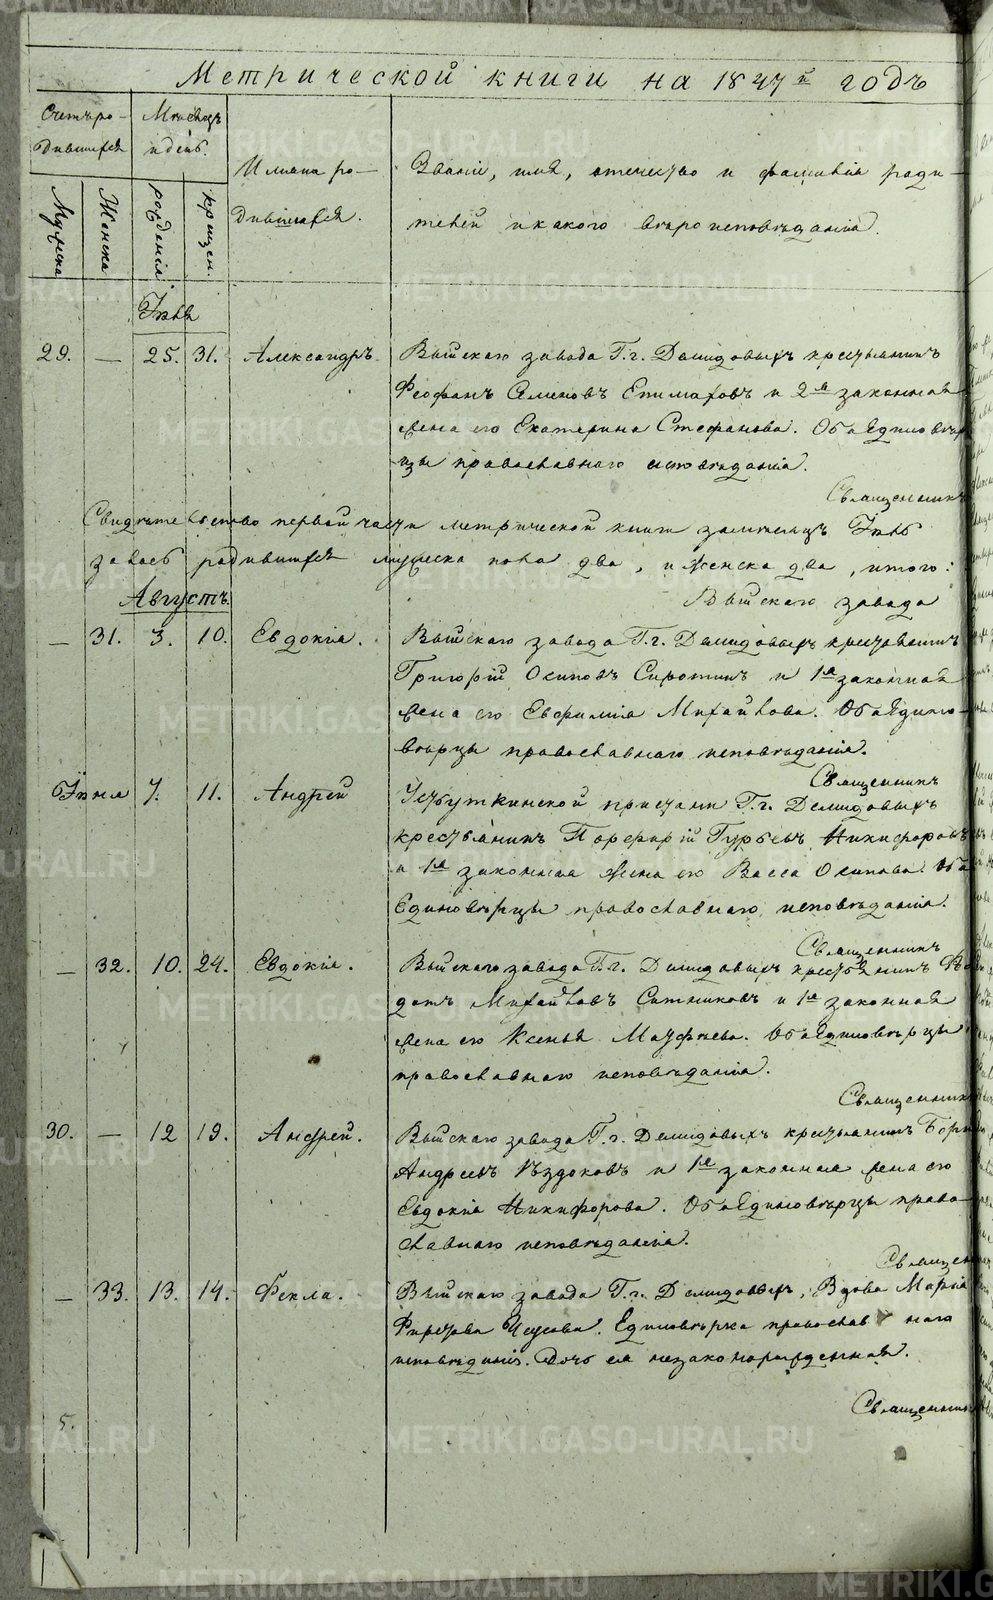 Метрической книги на 1847й годъ
Счетъ ро-
дившихся
Мѣсяцъ
и день.
Имена ро-
дившихся.
Званіе, имя, отечество и фамилія роди-
телей и какого вѣроисповѣданія.
Мужеска
Женска
рожденія
крещен.
Іюля
29. — 25. 31. Александръ. Выйскаго завода Г.г. Демидовыхъ крестьянинъ
Феофанъ Семеновъ Епимаховъ и 2я законная
жена его Екатерина Стефанова. Оба Единовѣр
цы православнаго исповѣданія.
Священникъ
Свидѣтельство первой части метрической книги Іюль
родившихся мужеска пола два, и женска два, итого:
Выйскаго завода
Августъ.
— 31. 3. 10. Евдокія. Выйскаго завода Г.г. Демидовыхъ крестьянинъ
Григорій Осиповъ Сиротинъ и 1я законная
жена его Евфимія Михайлова. Оба Едино-
вѣрцы православнаго исповѣданія.
Священникъ
7. 11. Андрей Усть-уткинской пристани Г.г. Демидовыхъ
крестьянинъ Порфирій Гурьевъ Никифоровъ
и 1я законная жена его Васса Осипова. Оба
Единовѣрцы православнаго исповѣданія.
Священникъ
— 32. 10. 24. Евдокія. Выйскаго завода Г.г. Демидовыхъ крестьянинъ
дотъ Михайловъ Ситниковъ и 1я законная
жена его Ксенья Матфѣева. Оба Единовѣрцы
православнаго исповѣданія.
Священникъ
30. — 12 19. Андрей. Выйскаго завода Г.г. Демидовыхъ крестьянинъ
Андреевъ Ѣздоковъ и 1я законная жена его
Евдокія Никифорова. Оба Единовѣрцы право-
славнаго исповѣданія.
Священ
— 33. 13. 14. Фекла. Выйскаго завода Г.г. Демидовыхъ, Вдова Марія
Единовѣрка православнаго
исповѣданія. Дочь ея незаконорожденная.
Священник
5.
METRIKI.GASO-URAL.RU